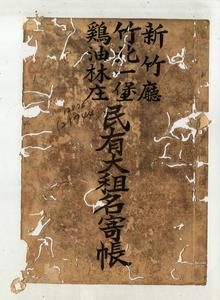 新竹廳
竹北一堡
鷄油林庄
民有大租名寄帳